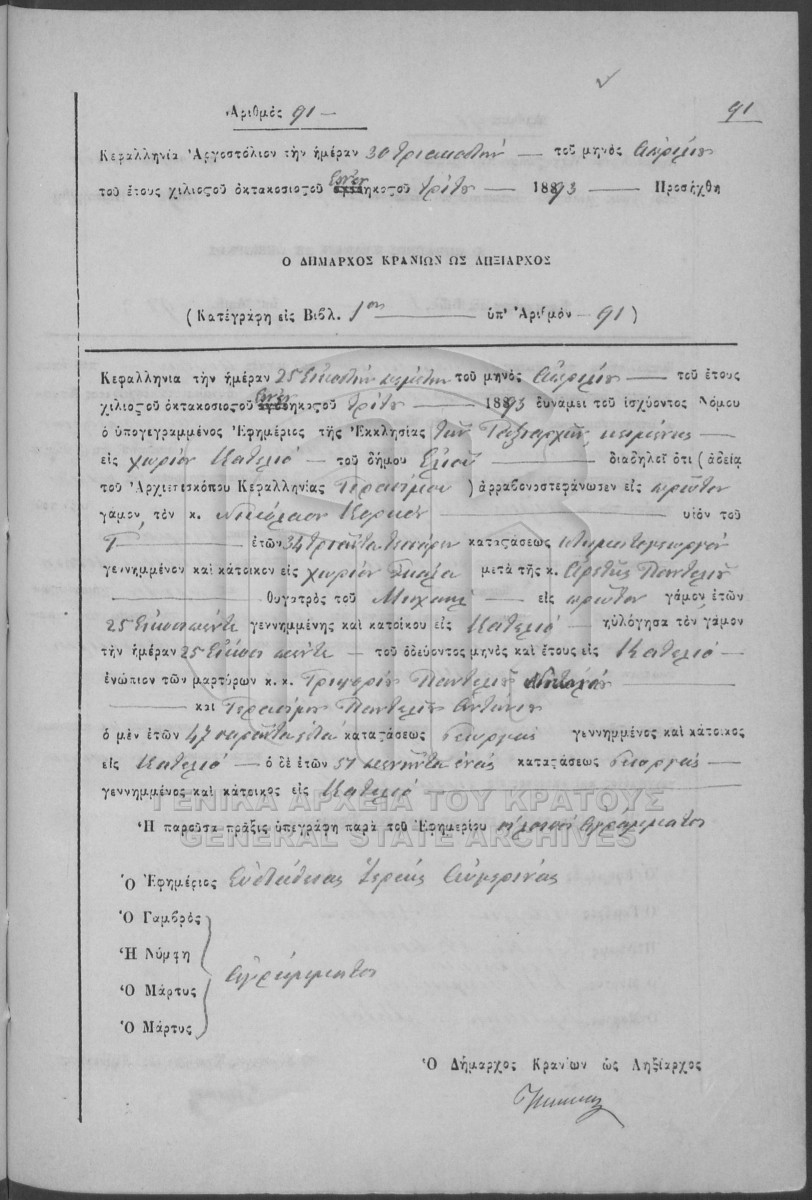 Ἀριθμὸς 91 —
91
Κεφαλληνία Ἀργοστόλιον τὴν ἡμέραν 30 τριακοστήν — τοῦ μηνὸς Ἀπριλίου
τοῦ ἔτους χιλιοστοῦ ὀκτακοσιοστοῦ ἐνενηκοστοῦ τρίτου — 1893 — Προσήχθη
Ο ΔΗΜΑΡΧΟΣ ΚΡΑΝΙΩΝ ΩΣ ΛΗΞΙΑΡΧΟΣ
(Κατεγράφη εἰς Βιβλ. 1ον — ὑπ' Ἀριθμὸν — 91)
Κεφαλληνια τὴν ἡμέραν 25 εἰκοστὴν πέμπτην τοῦ μηνὸς Ἀπριλίου — τοῦ ἔτους
χιλιοστοῦ ὀκτακοσιοστοῦ ἐνενηκοστοῦ τρίτου — 1893 δυνάμει τοῦ ἰσχύοντος Νόμου
ὁ ὑπογεγραμμένος Ἐφημέριος τῆς Ἐκκλησίας τῶν Ταξιαρχῶν κειμένης —
εἰς χωρίον Κατελιό — τοῦ δήμου Ἐλιοῦ — διαδηλοῖ ὅτι (ἀδείᾳ
τοῦ Ἀρχιεπισκόπου Κεφαλληνίας Γερασίμου) ἀρραβονοστεφάνωσεν εἰς πρῶτον
γάμον, τὸν κ. Νικόλαον — υἱὸν τοῦ
Γ — ἐτῶν 34 τριάντα τεσσάρων καταστάσεως κτηματογεωργοῦ
γεννημμένον καὶ κάτοικον εἰς χωρίον Σκάλα μετὰ τῆς κ. Ἀρετῆς Παντελῆ
— θυγατρὸς τοῦ Μιχαήλ — εἰς πρῶτον γάμον ἐτῶν
25 εἴκοσι πέντε γεννημμένης καὶ κατοίκου εἰς Κατελιό — ηὐλόγησα τὸν γάμον
τὴν ἡμέραν 25 εἴκοσι πέντε — τοῦ ὁδεύοντος μηνὸς καὶ ἔτους εἰς Κατελιό —
ἐνώπιον τῶν μαρτύρων κ. κ. Γρηγορίου Παντελῆ —
— καὶ Γερασίμου Παντελῆ Ἀντωνίου
ὁ μὲν ἐτῶν 47 σαράντα ἑπτά καταστάσεως Γεωργὸς γεννημμένος καὶ κάτοικος
εἰς Κατελιό — ὁ δὲ ἐτῶν 51 πενήντα ἑνός καταστάσεως Γεωργὸς —
γεννημμένος καὶ κάτοικος εἰς Κατελιό —
ΓΕΝΙΚΑ ΑΡΧΕΙΑ ΤΟΥ ΚΡΑΤΟΥΣ
Ἡ παροῦσα πρᾶξις ὑπεγράφη παρὰ τοῦ Ἐφημερίου οἱ λοιποί ἀγράμματοι
GENERAL STATE ARCHIVES
Ὁ Ἐφημέριος Εὐστάθιος Ἱερεὺς Αὐγερινός
Ὁ Γαμβρὸς
Ἡ Νύμφη
ἀγράμματοι
Ὁ Μάρτυς
Ὁ Μάρτυς
Ὁ Δήμαρχος Κρανίων ὡς Ληξίαρχος